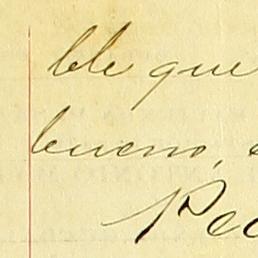 ble que
bueno,
Pe